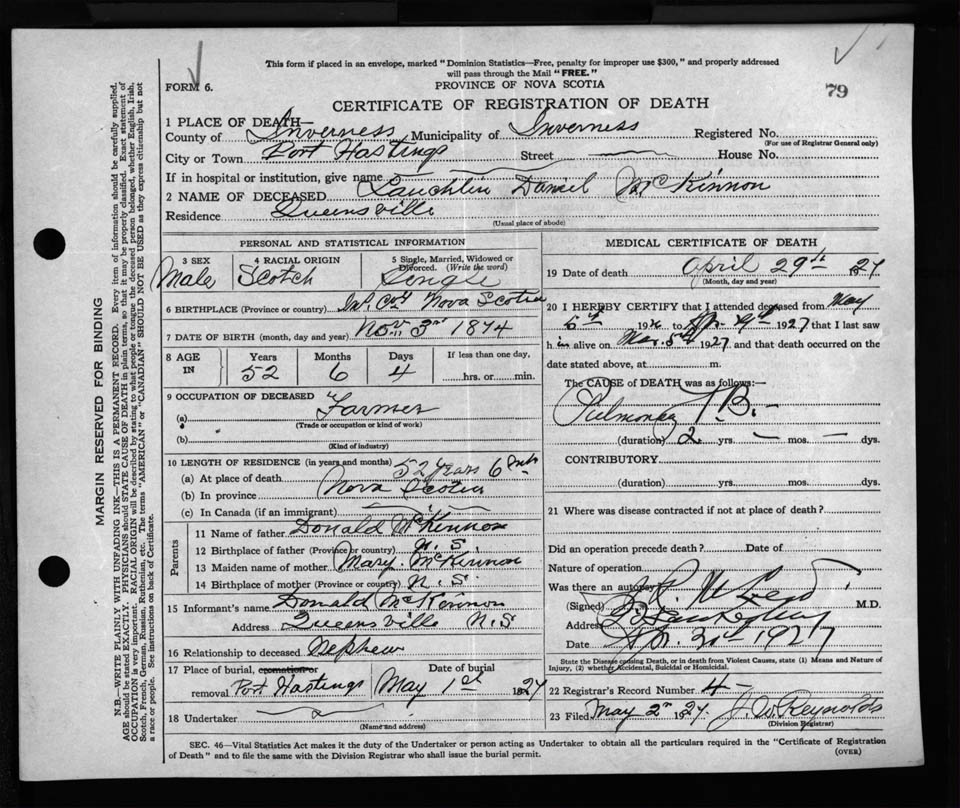 This form if placed in an envelope, marked "Dominion Statistics—Free, penalty for improper use $300," and properly addressed
will pass through the Mail "FREE."
FORM 6.
PROVINCE OF NOVA SCOTIA
79
CERTIFICATE OF REGISTRATION OF DEATH
1 PLACE OF DEATH—
County of Inverness Municipality of Inverness Registered No.
(For use of Registrar General only)
City or Town Port Hastings Street House No.
If in hospital or institution, give name
2 NAME OF DECEASED Lauchlin Daniel McKinnon
Residence Queensville
(Usual place of abode)
PERSONAL AND STATISTICAL INFORMATION
3 SEX Male
4 RACIAL ORIGIN Scotch
5 Single, Married, Widowed or Divorced. (Write the word) Single
6 BIRTHPLACE (Province or country) Inv. Coy Nova Scotia
7 DATE OF BIRTH (month, day and year) Nov 3rd 1874
8 AGE IN Years Months Days If less than one day,
52 6 4 hrs. or min.
9 OCCUPATION OF DECEASED
(a) Farmer
(Trade or occupation or kind of work)
(b)
(Kind of industry)
10 LENGTH OF RESIDENCE (in years and months)
(a) At place of death 52 Years 6 Mnts
(b) In province Nova Scotia
(c) In Canada (if an immigrant)
Parents
11 Name of father Donald McKinnon
12 Birthplace of father (Province or country) N. S.
13 Maiden name of mother Mary McKinnon
14 Birthplace of mother (Province or country) N. S.
15 Informant's name Donald McKinnon
Address Queensville N.S
16 Relationship to deceased Nephew
17 Place of burial, cremation or removal Port Hastings
Date of burial May 1st 1927
18 Undertaker
(Name and address)
MEDICAL CERTIFICATE OF DEATH
19 Date of death April 29th 1927
(Month, day and year)
20 I HEREBY CERTIFY that I attended deceased from May
6th 1926 to 1927 that I last saw
him alive on Mar. 5th 1927 and that death occurred on the
date stated above, at m.
The CAUSE of DEATH was as follows:—
Pulmonary T.B.—
(duration) 2 yrs. — mos. — dys.
CONTRIBUTORY
(duration) yrs. mos. dys.
21 Where was disease contracted if not at place of death?
Did an operation precede death? Date of
Nature of operation
Was there an autopsy
(Signed) M.D.
Address
Date 1927
State the Disease causing Death, or in death from Violent Causes, state (1) Means and Nature of
Injury, (2) whether Accidental, Suicidal or Homicidal.
22 Registrar's Record Number 4 —
23 Filed May 2nd 1927 Reynolds
(Division Registrar)
SEC. 46—Vital Statistics Act makes it the duty of the Undertaker or person acting as Undertaker to obtain all the particulars required in the "Certificate of Registration
of Death" and to file the same with the Division Registrar who shall issue the burial permit.
(OVER)
MARGIN RESERVED FOR BINDING
N.B.—WRITE PLAINLY WITH UNFADING INK—THIS IS A PERMANENT RECORD. Every item of information should be carefully supplied.
AGE should be stated EXACTLY. PHYSICIANS should STATE CAUSE OF DEATH in plain terms, so that it may be properly classified. Exact statement of
OCCUPATION is very important. RACIAL ORIGIN will be described by stating to what people or tongue the deceased person belonged, whether English, Irish,
Scotch, French, German, Russian, Ruthenian, etc. The terms "AMERICAN" or "CANADIAN" SHOULD NOT BE USED as they express citizenship but not
a race or people. See instructions on back of Certificate.